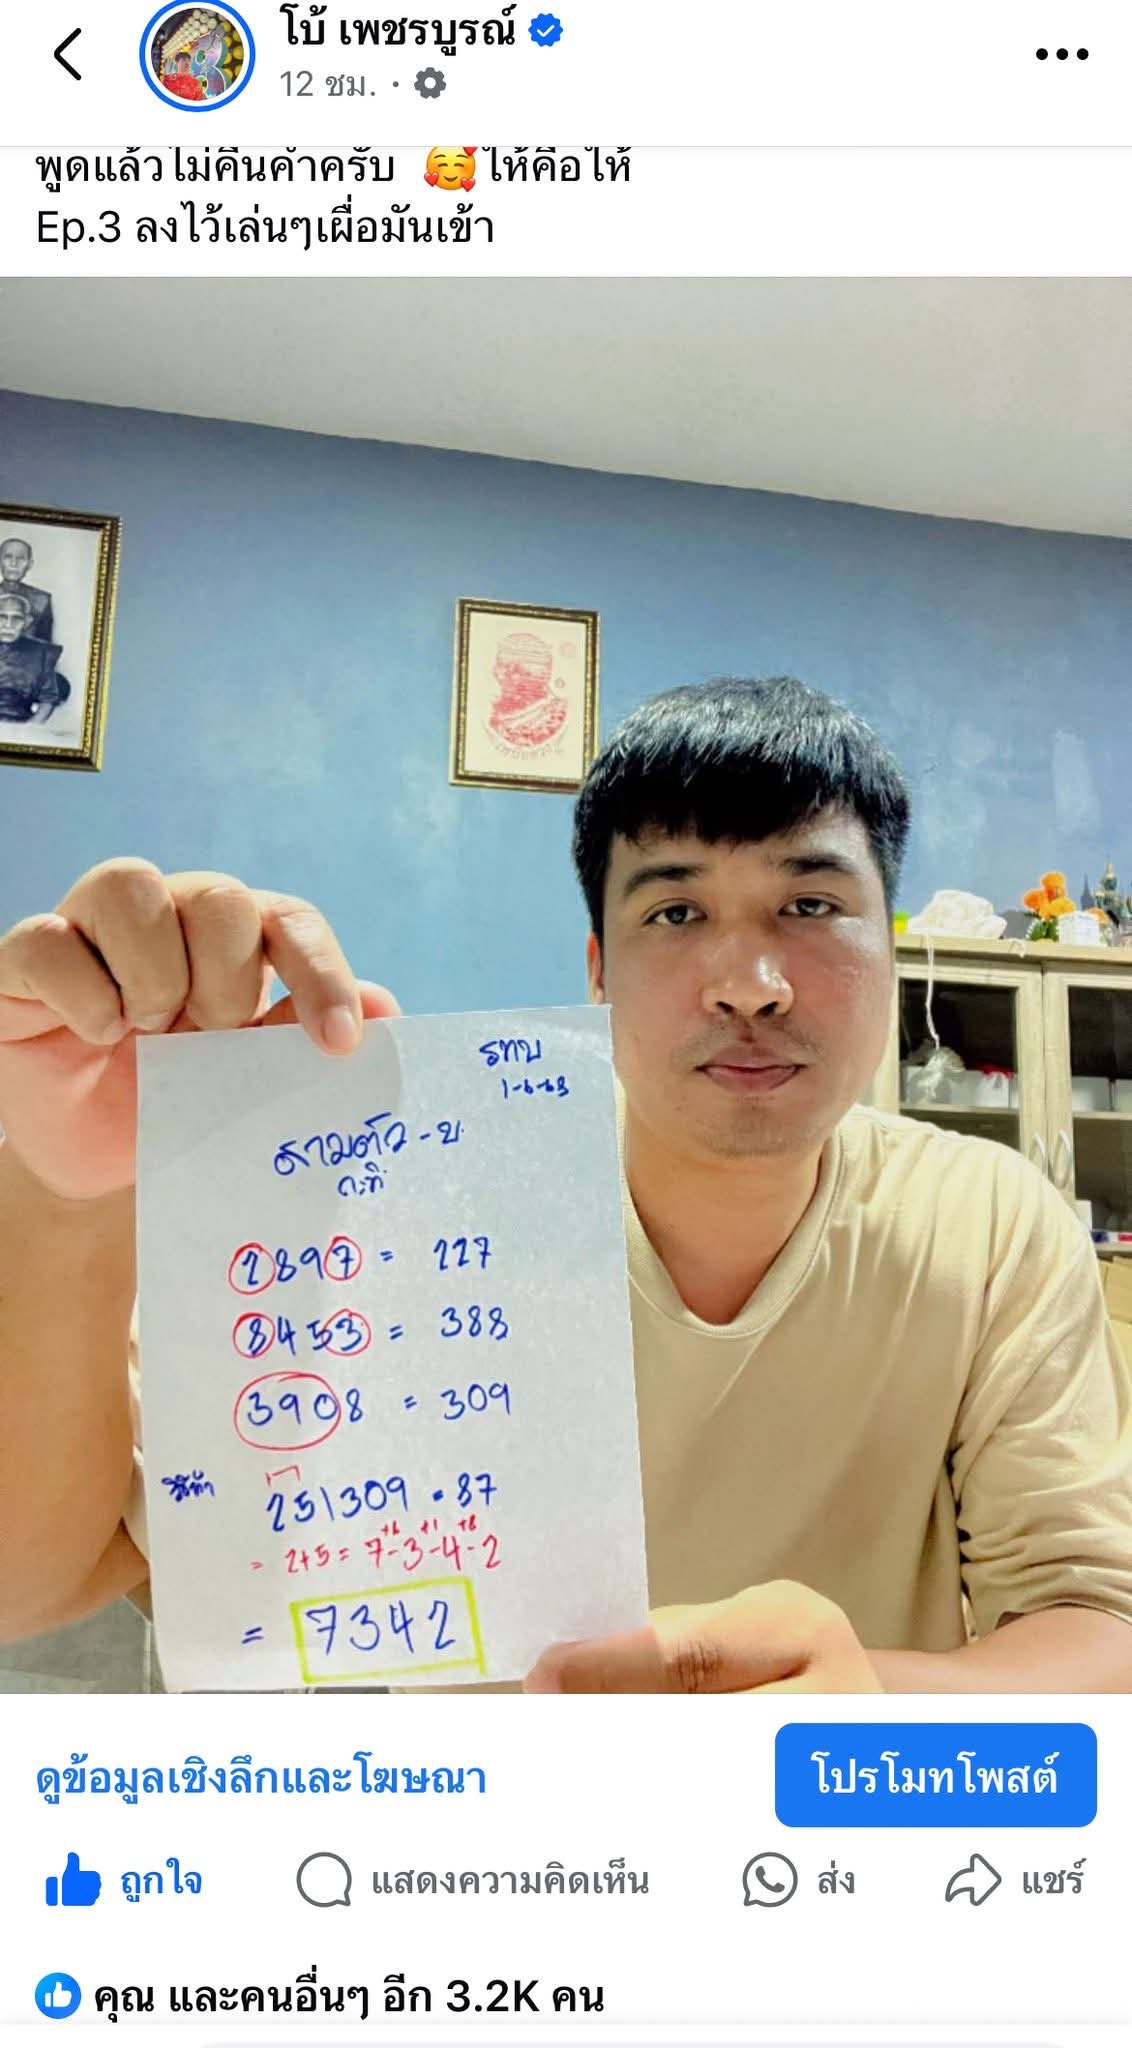 โบ้ เพชรบูรณ์
12 ชม.
พูดแล้วไม่คืนคำครับ 🥰 ให้คือให้
Ep.3 ลงไว้เล่นๆเผื่อมันเข้า
รทบ
1-6-68
สามตัว-บ.
กะทิ
2897 = 227
8453 = 388
3908 = 309
วิธีทำ
251309 = 87
+6 +1 +8
= 2+5 = 7-3-4-2
= 7342
ดูข้อมูลเชิงลึกและโฆษณา
โปรโมทโพสต์
ถูกใจ แสดงความคิดเห็น ส่ง แชร์
คุณ และคนอื่นๆ อีก 3.2K คน